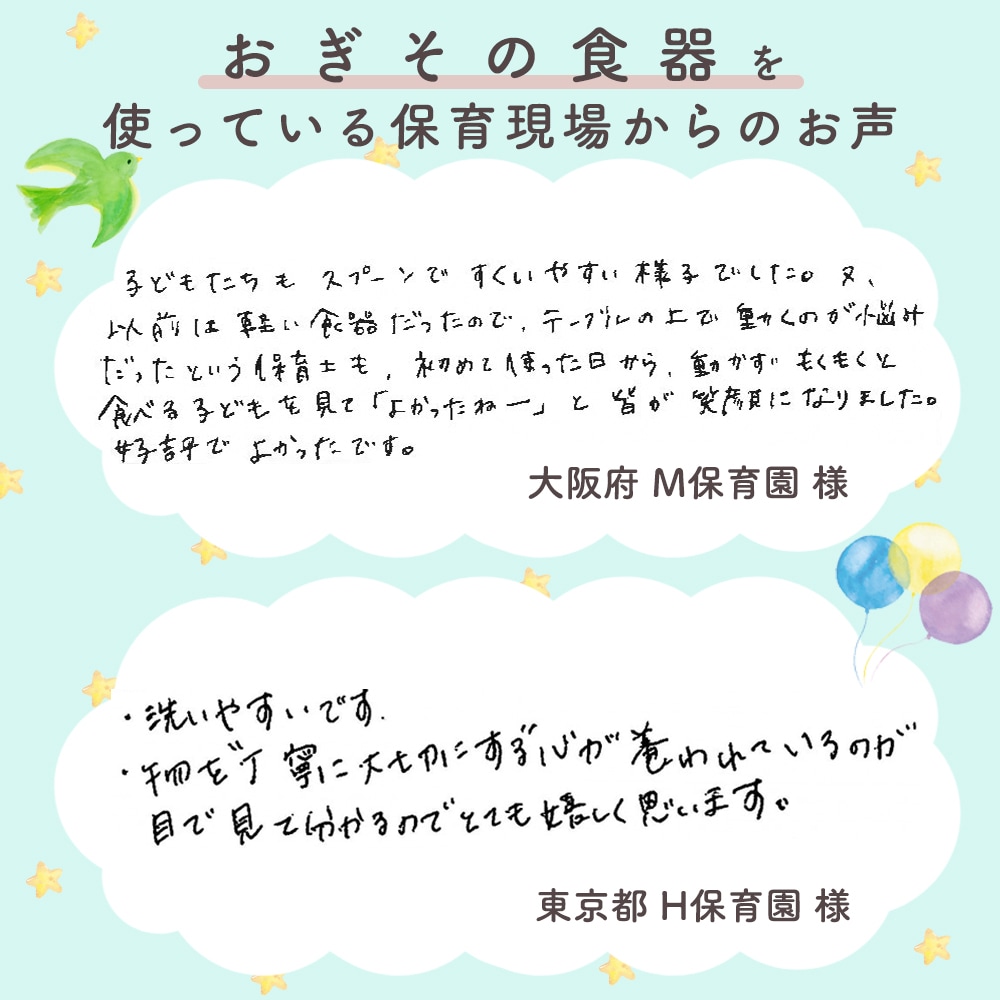 おぎその食器を
使っている保育現場からのお声
子どもたちも スプーンで すくいやすい 様子でした。又、
以前は 軽い食器だったので、テーブルの上で 動くのが悩み
だったという保育士も、初めて使った日から、動かずに もくもくと
食べる子どもを見て「よかったねー」と 皆が 笑顔になりました。
好評で よかったです。
大阪府 M保育園 様
・洗いやすいです.
・物を丁寧に大切にする心が養われているのが
目で見て分かるのでとても嬉しく思います。
東京都 H保育園 様